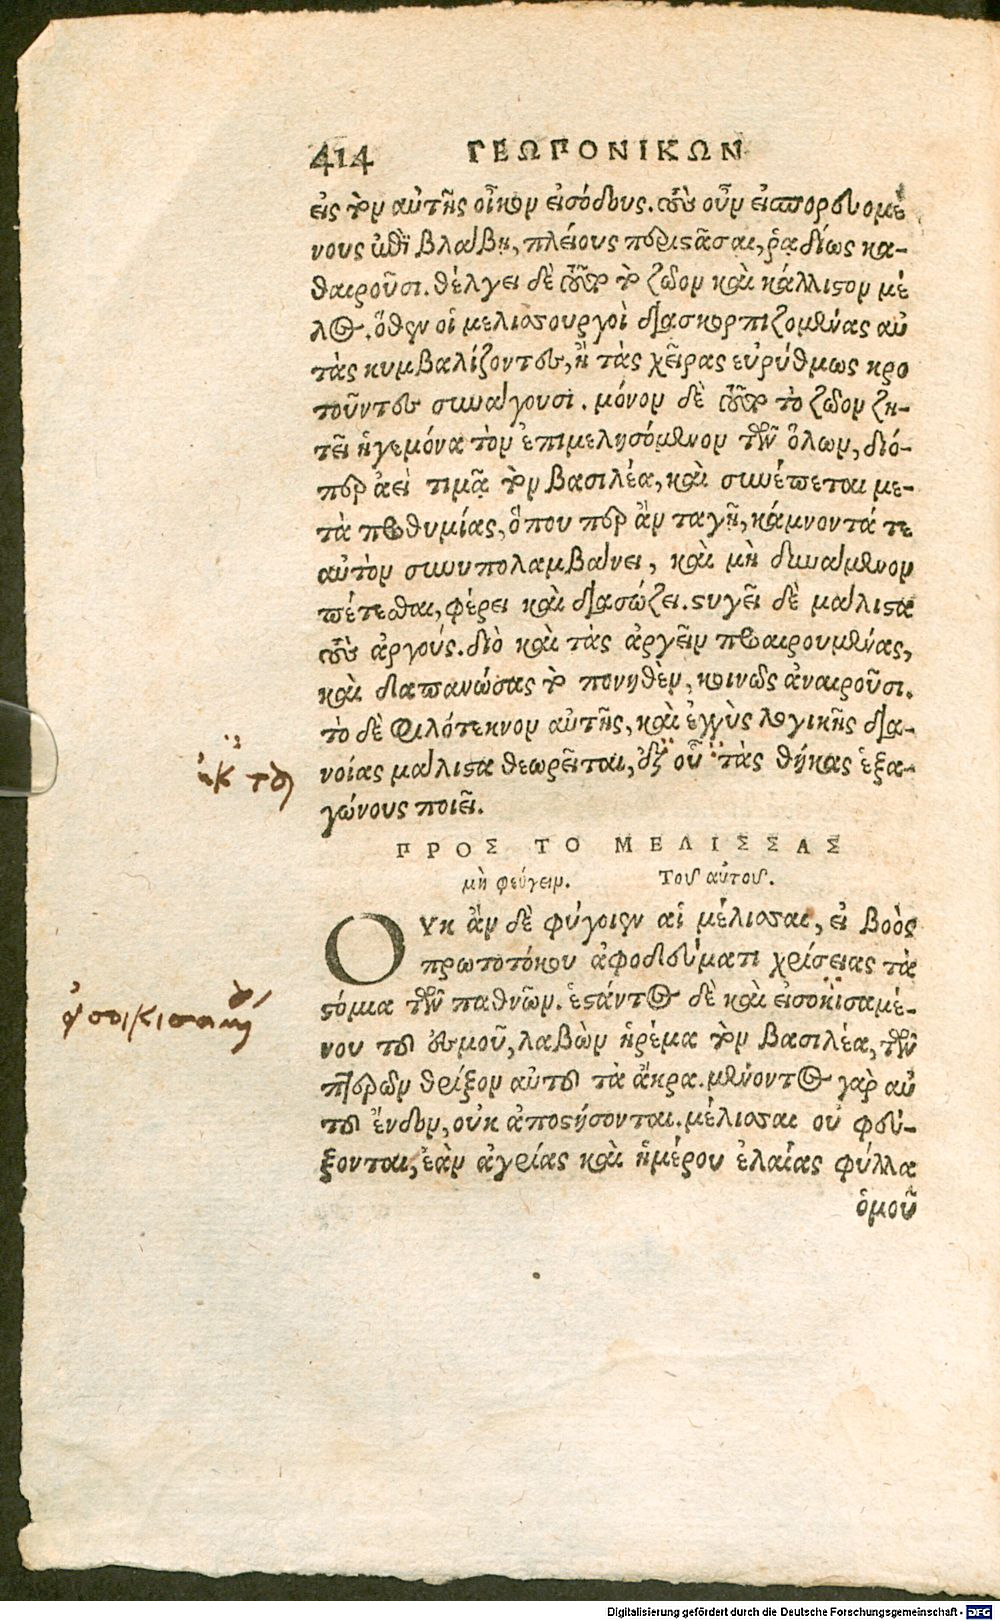 414 ΓΕΩΠΟΝΙΚΩΝ
εἰς τὸν αὐτῆς οἶκον εἰσόδους. τοὺς οὖν εἰσπορευομέ
νους ἐπὶ βλάβῃ, πλείους περιστᾶσαι, ῥᾳδίως κα-
θαιροῦσι. θέλγει δὲ τοῦτο τὸ ζῶον καὶ κάλλιστον μέ
λος. ὅθεν οἱ μελισσουργοὶ διασκορπιζομένας αὐ
τὰς κυμβαλίζοντες, ἢ τὰς χεῖρας εὐρύθμως κρο
τοῦντες συνάγουσι. μόνον δὲ τοῦτο τὸ ζῶον ζη-
τεῖ ἡγεμόνα τὸν ἐπιμελησόμενον τῶν ὅλων, διό-
περ ἀεὶ τιμᾷ τὸν βασιλέα, καὶ συνέπεται με-
τὰ προθυμίας, ὅπου περ ἂν ταγῇ, κάμνοντά τε
αὐτὸν συνυπολαμβάνει, καὶ μὴ δυνάμενον
πέτεσθαι, φέρει καὶ διασώζει. στυγεῖ δὲ μάλιστα
τοὺς ἀργούς. διὸ καὶ τὰς ἀργεῖν προαιρουμένας,
καὶ διαπανώσας τὸ πονηθὲν, κοινῶς ἀναιροῦσι.
τὸ δὲ φιλότεκνον αὐτῆς, καὶ ἐγγὺς λογικῆς δια-
νοίας μάλιστα θεωρεῖται, ἐξ οὗ τὰς θήκας ἑξα-
ἐκ τοῦ
γώνους ποιεῖ.
ΠΡΟΣ ΤΟ ΜΕΛΙΣΣΑΣ
μὴ φεύγειν. Τοῦ αὐτοῦ.
ΟΥκ ἂν δὲ φύγοιεν αἱ μέλισσαι, εἰ βοὸς
πρωτοτόκου ἀφοδεύματι χρίσειας τὰ
στόμια τῶν παθνῶν. ἑστάντος δὲ καὶ εἰσοκισαμέ-
νου τοῦ ἑσμοῦ, λαβὼν ἠρέμα τὸν βασιλέα, τῶν
πτερῶν θρίξον αὐτοῦ τὰ ἄκρα. μένοντος γὰρ αὐ
τοῦ ἔνδον, οὐκ ἀποστήσονται. μέλισσαι οὐ φεύ-
ξονται, ἐὰν ἀγρίας καὶ ἡμέρου ἐλαίας φύλλα
ὁμοῦ